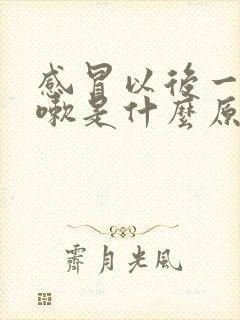 感冒以後一
嗽是什麼原
霽月光風